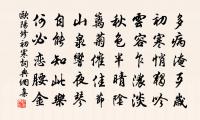 多病淹殘歲
初寒悄獨吟
雲容乍濃淡
秋色半晴陰
籬菊催佳節
山泉響夜琴
自能知此樂
何必戀腰金
歐陽修初寒詞典網集